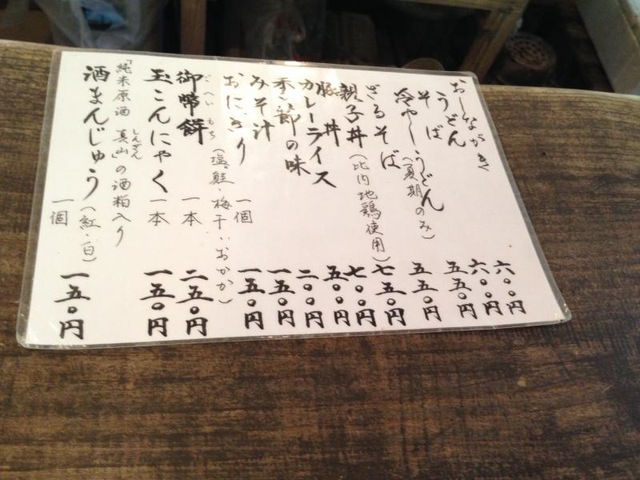 おしながき
うどん 六〇〇円
そば 六〇〇円
冷やしうどん(夏期のみ) 五五〇円
ざるそば 五五〇円
親子丼(比内地鶏使用) 七五〇円
豚丼 七〇〇円
カレーライス 五〇〇円
季節の味 二〇〇円
みそ汁 一五〇円
おにぎり 一個 一五〇円
(塩鮭・梅干・おかか)
ごへいもち
御幣餅 一本 二五〇円
玉こんにゃく 一本 一五〇円
しんざん
「純米原酒 真山」の酒粕入り
酒まんじゅう(紅・白) 一五〇円
一個